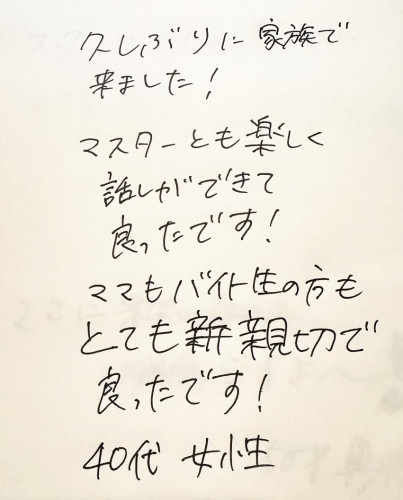 久しぶりに家族で
来ました!
マスターとも楽しく
話しができて
良ったです!
ママもバイト生の方も
とても新親切で
良ったです!
40代 女性